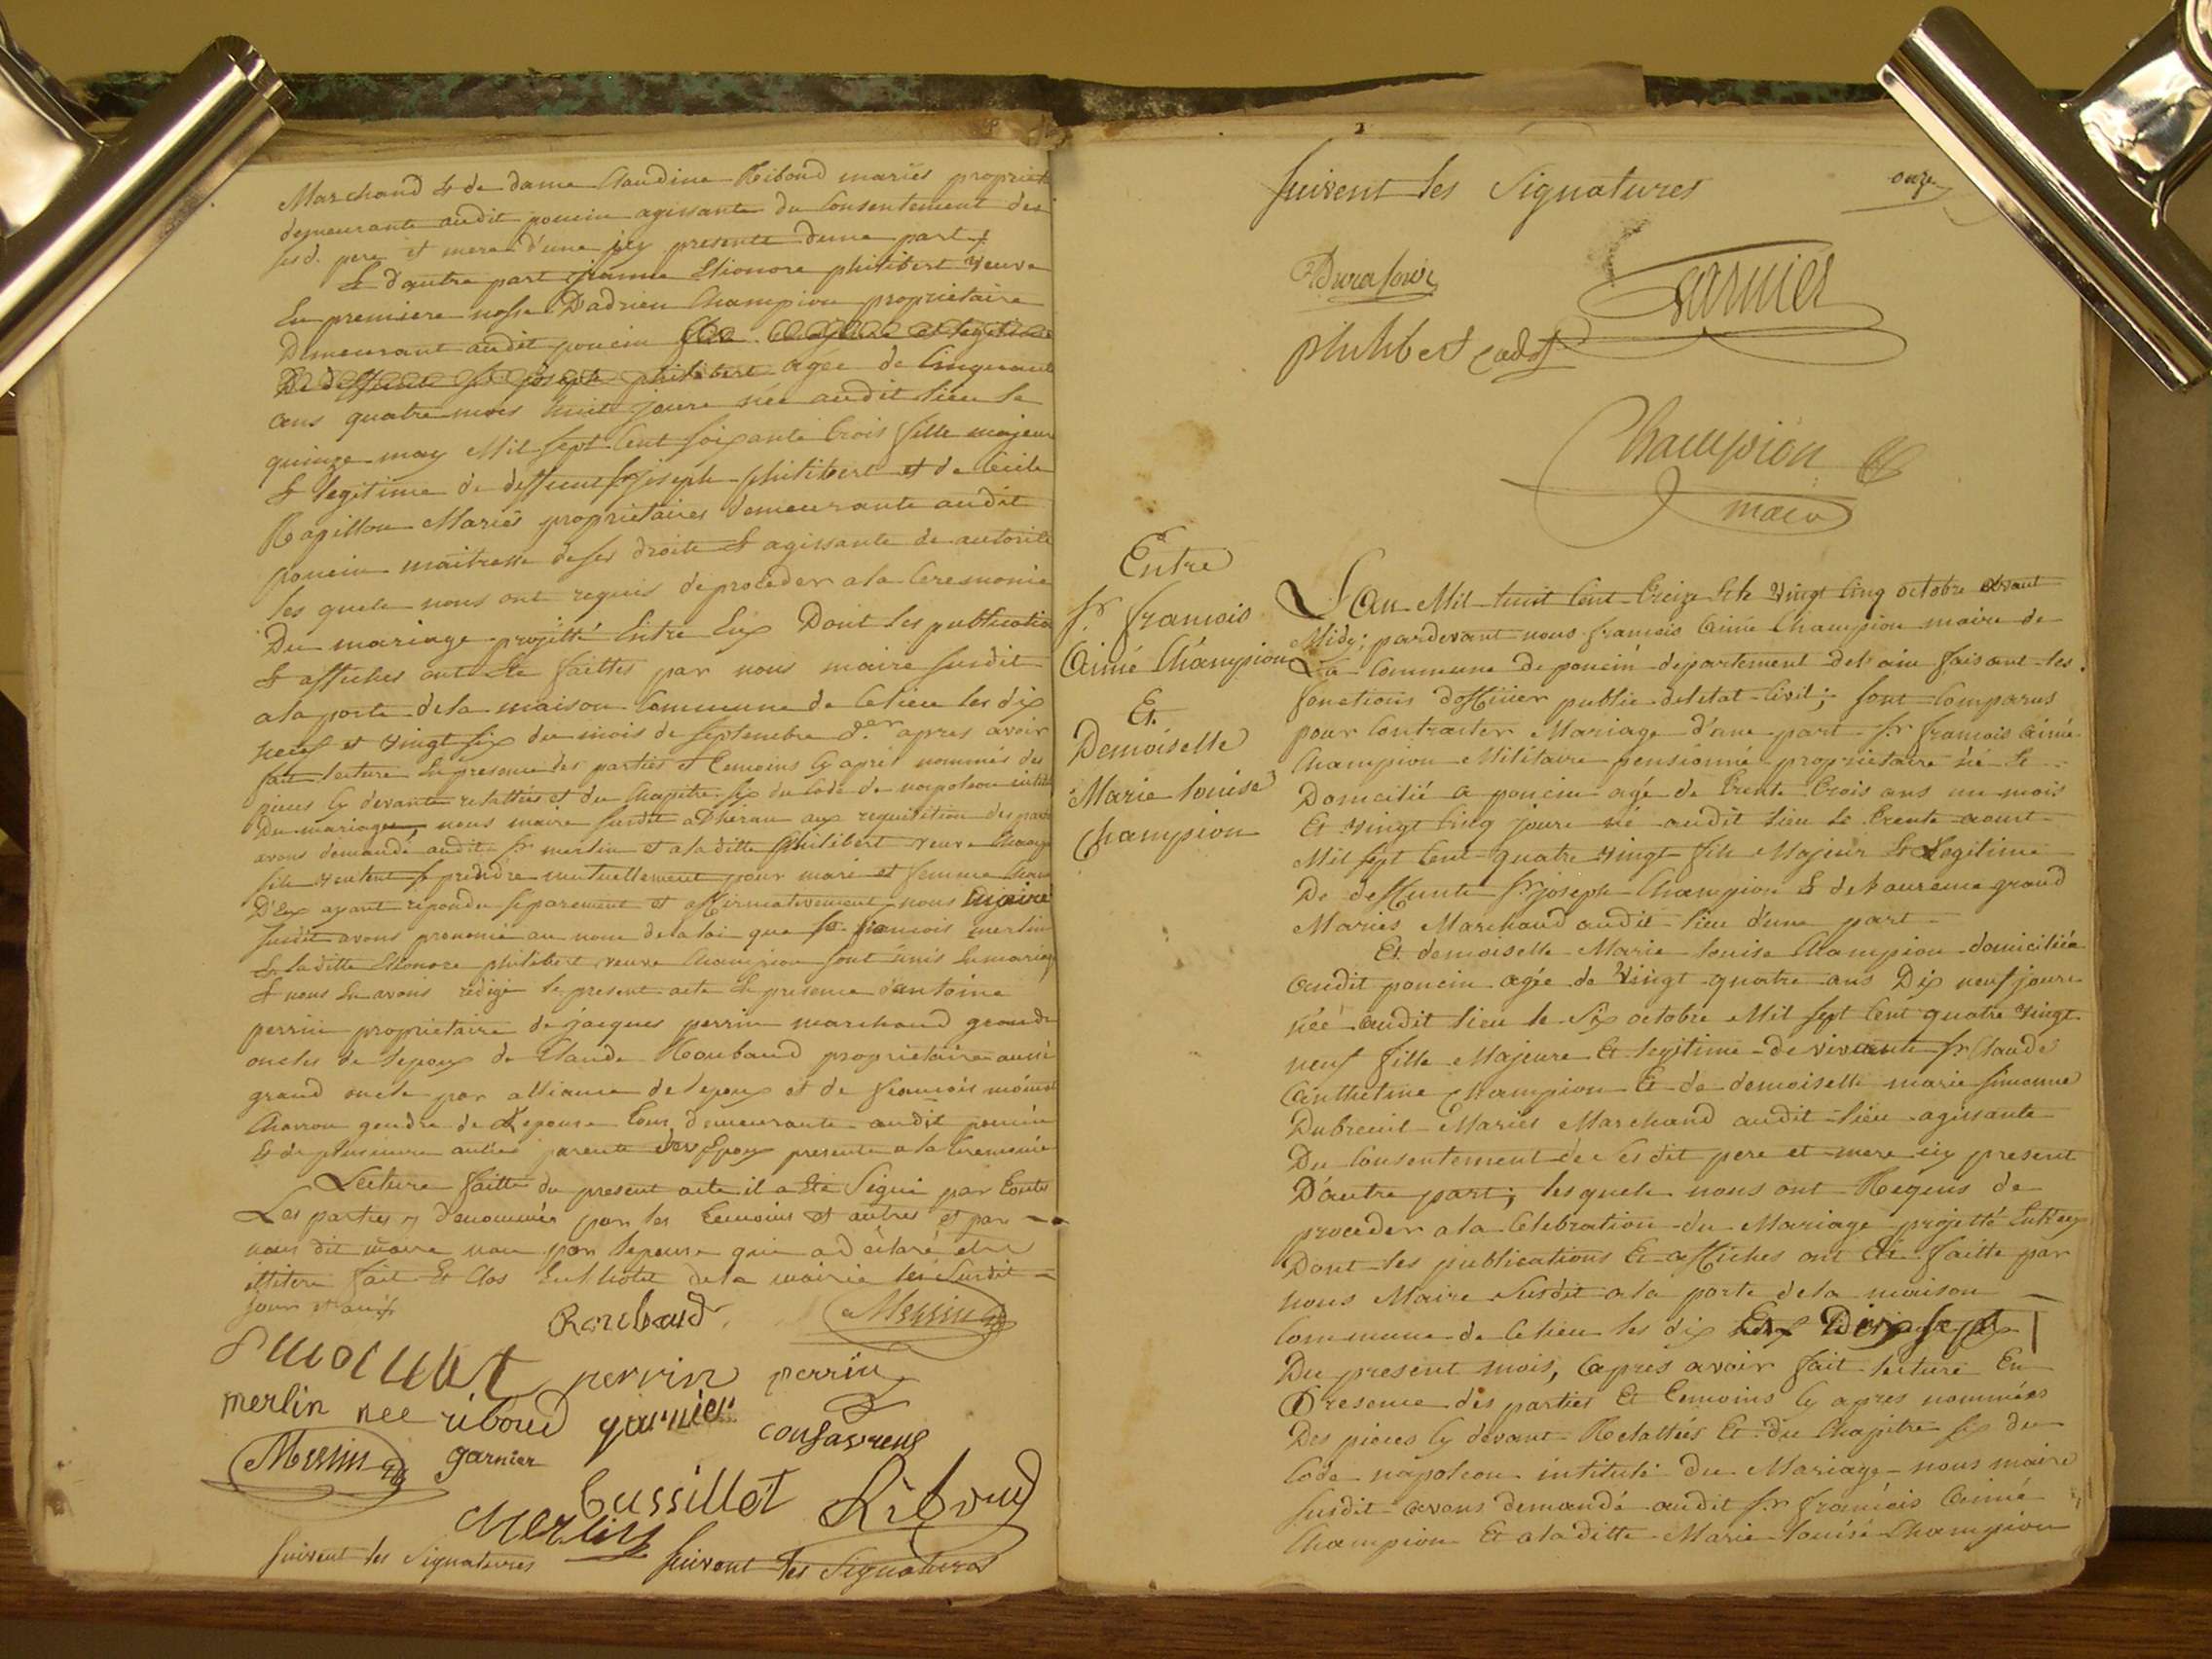 Marchand & de dame Claudine Riboud mariés propriet
demeurants audit poncin agissante du Consentement des
susd. pere et mere d'une icy presente d'une part
Et d'autre part jeanne Elionore philibert veuve
En premiere nosse D'adrien Champion propriétaire
Demeurant audit poncin
agée de Cinquante
ans quatre mois huit jours née audit lieu le
quinze may Mil Sept Cent soixante trois fille majeure
& legitime de deffunt Sr joseph philibert et de Cécile
Rapillon Mariés propriétaires demeurants audit
poncin maitresse de ses droits & agissante de autorité
les quels nous ont requis de procéder a la Ceremonie
Du mariage projetté Entre Eux Dont les publication
& affiches ont Eté faittes par nous maire susdit
a la porte de la maison Commune de Ce lieu les dix
neuf et vingt six du mois de Septembre d.er apres avoir
fait lecture En presence des parties et temoins Cy après nommés des
pieces Cy devant relattées et du Chapitre six du Code de napoleon intitulé
Du mariage, nous maire susdit adhérant aux requisition des parties
avons demandé audit Sr merlin et a la ditte philibert veuve Champ
s'ils veulent se prendre mutuellement pour mari et femme Chacun
D'Eux ayant repondu separement et affirmativement nous maire
susdit avons prononcé au nom de la loi que Sr francois merlin
& laditte Elionore philibert veuve Champion sont unis En mariage
& nous En avons redigé le present acte En presence d'antoine
perrin propriétaire de jacques perrin marchand grands
oncles de l'epoux de Claude Roubaud propriétaire aussi
grand oncle par alliance de l'epoux et de francois moinat
Charron gendre de L'epouse tous demeurants audit poncin
& de plusieurs autres parents des Epoux presents a la Ceremonie
Lecture faitte du present acte il a Eté Signé par toutes
Les parties y denommées par les temoins et autres et par
nous dit maire non par l'epouse qui a déclaré etre
illitere fait Et Clos En l'hotel de la mairie les susdit
jour et an
Roubaud Merlin
moinat perrin perrin
merlin nee riboud garnier
Confavreux
Merlin garnier
Cussillot Riboud
Merlin
suivent les Signatures suivent les Signatures
Suivent les Signatures
onze
Durafour Garnier
philibert cadet
Champion
maire
Entre
Sr francois
Aimé Champion
Et
Demoiselle
Marie louise
Champion
L'an Mil huit Cent treize & le vingt Cinq octobre avant
Midy; pardevant nous francois Aimé Champion maire de
La Commune de poncin departement de l'ain faisant les
fonctions d'officier public de l'etat Civil; sont Comparus
pour Contracter Mariage d'une part Sr francois Aimé
Champion Militaire pensionné propriétaire né &
Domicilié a poncin agé de trente trois ans un mois
Et vingt Cinq jours né audit lieu le trente aoust
Mil sept Cent quatre vingt fils Majeur & Legitime
De deffunts Sr joseph Champion & de Laurence grand
Mariés Marchand audit lieu d'une part
Et demoiselle Marie louise Champion domiciliée
audit poncin agée de vingt quatre ans Dix neuf jours
née audit lieu le Six octobre Mil sept Cent quatre vingt
neuf fille Majeure Et legitime de vivants Sr Claude
Anthelme Champion Et de demoiselle marie simonne
Dubreuil Mariés Marchand audit lieu agissante
Du Consentement de Ses dit pere et mere icy present
D'autre part; les quels nous ont Requis de
proceder a la Celebration du Mariage projetté Entr'eux
Dont les publications Et affiches ont Eté faitte par
nous Maire Susdit a la porte de la maison
Commune de Ce lieu les dix Et Dix sept
Du present mois, apres avoir fait lecture En
Presence des parties Et temoins Cy apres nommées
Des pieces Cy devant Relattées Et du Chapitre six du
Code napoleon intitulé Du Mariage nous maire
susdit avons demandé audit Sr francois Aimé
Champion Et a la ditte Marie louise Champion